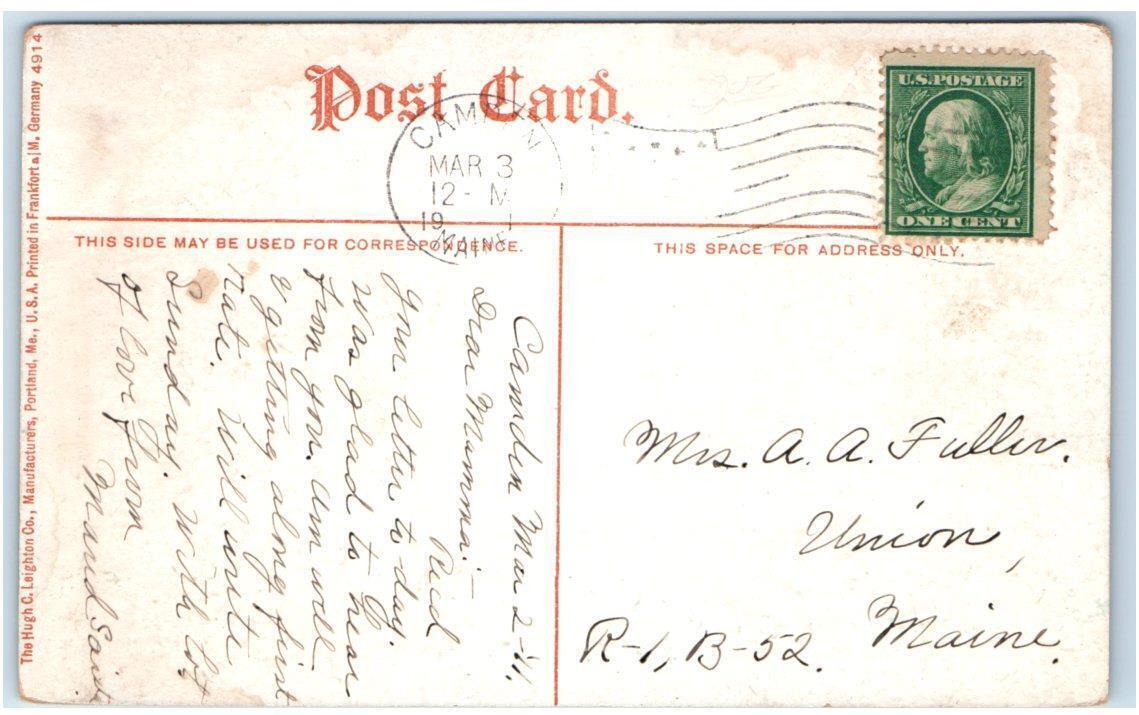 Post Card.
CAMDEN
MAR 3
12-M
19 1
MAINE
U.S. POSTAGE
ONE CENT
THIS SIDE MAY BE USED FOR CORRESPONDENCE.
THIS SPACE FOR ADDRESS ONLY.
The Hugh C. Leighton Co., Manufacturers, Portland, Me., U.S.A. Printed in Frankfort a/M. Germany 4914
Camden Mar 2-'11,
Dear Mumma:-
Recd
your letter to-day.
was glad to hear
from you. Am well
& getting along first
rate. Will write
Sunday. With lots
of love from
Maud
Mrs. A. A. Fuller.
Union,
Maine.
R-1, B-52.